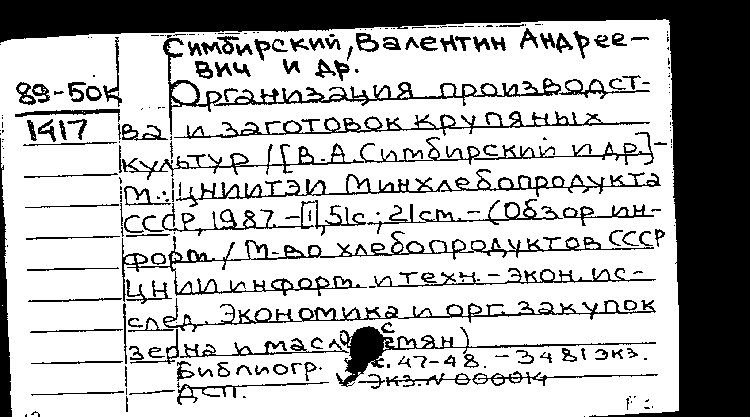 Симбирский, Валентин Андрее-
вич и др.
89-50К
Организация производст-
1417
ва и заготовок крупяных
культур / [В.А.Симбирский и др.]-
М.: ЦНИИТЭИ Минхлебопродукта
СССР, 1987. - [1], 51с.; 21см. - (Обзор ин-
форм. / М-во хлебопродуктов СССР
ЦНИИ информ. и техн.-экон. ис-
след. Экономика и орг. закупок
зерна и маслосемян)
Библиогр. с. 47-48. - 3481 экз.
ДСП. Экз. N 000014